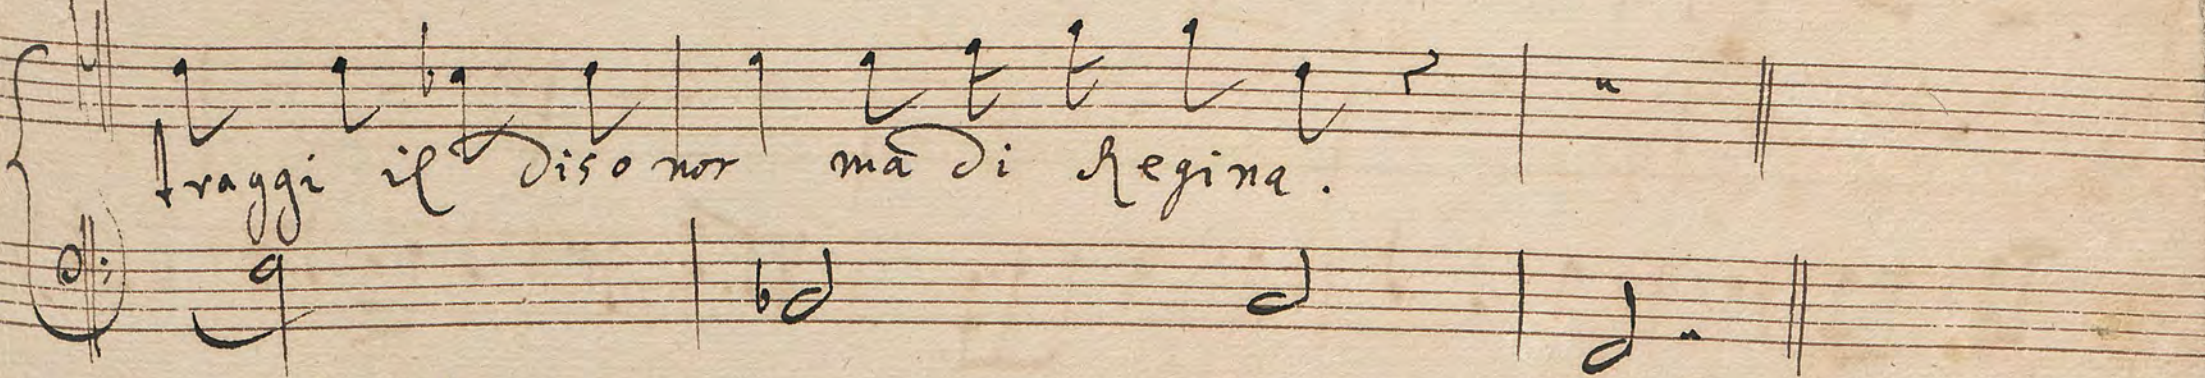 traggi il disonor mà di Regina.